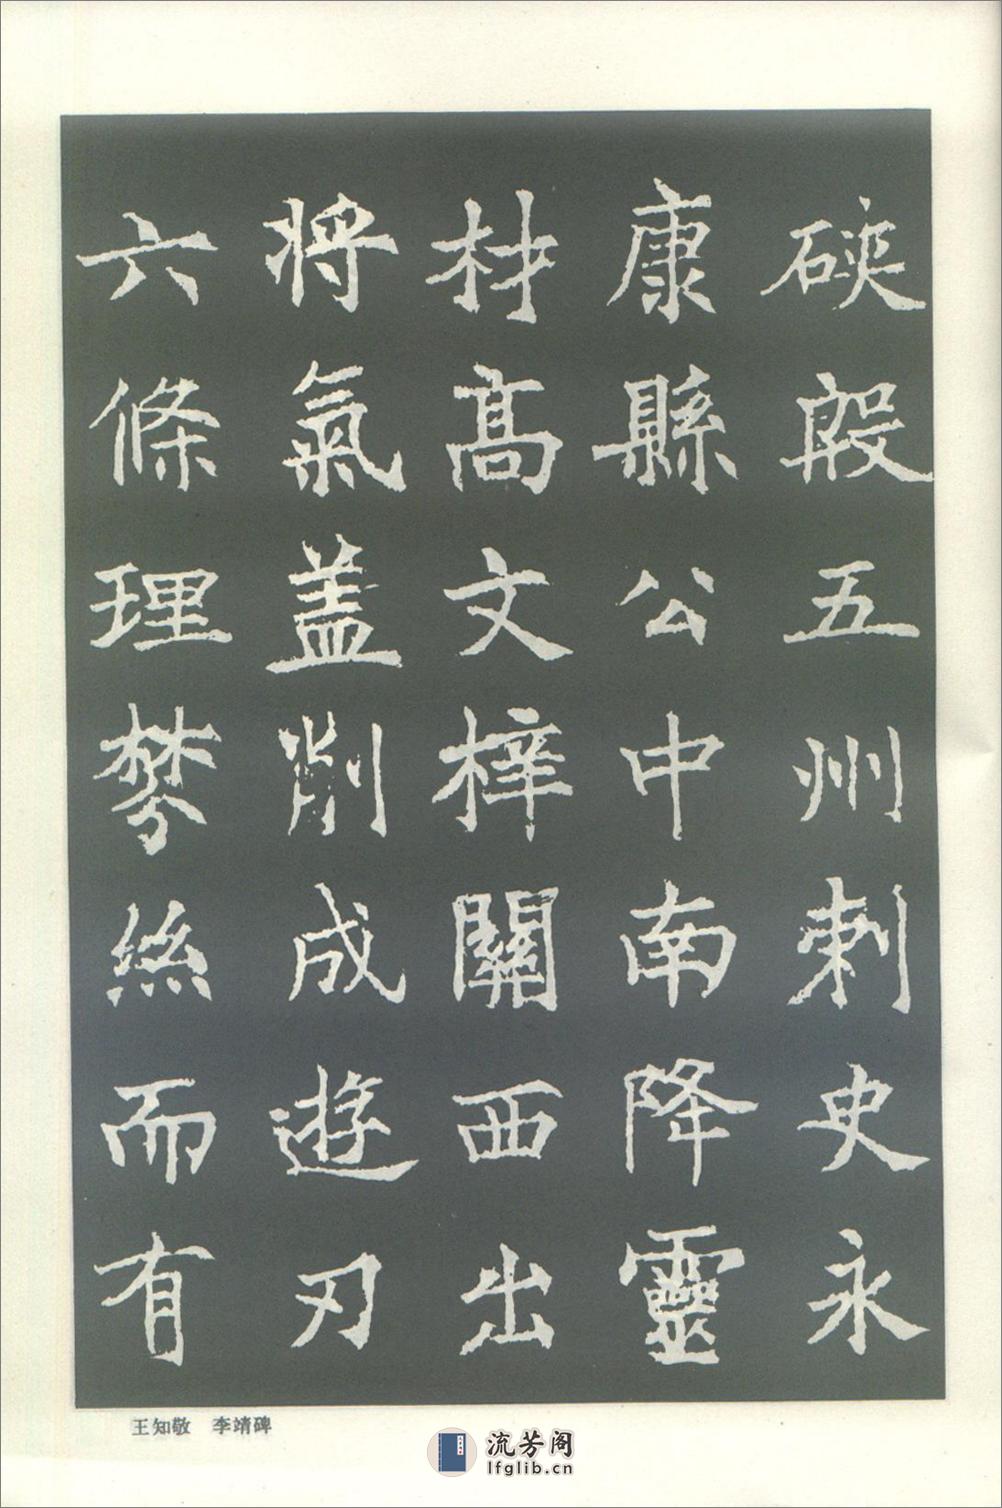 硤殷五州刺史永
康縣公中南降靈
材高文梓關西出
將氣蓋削成遊刃
六條理棼絲而有
王知敬 李靖碑
流芳阁
lfglib.cn